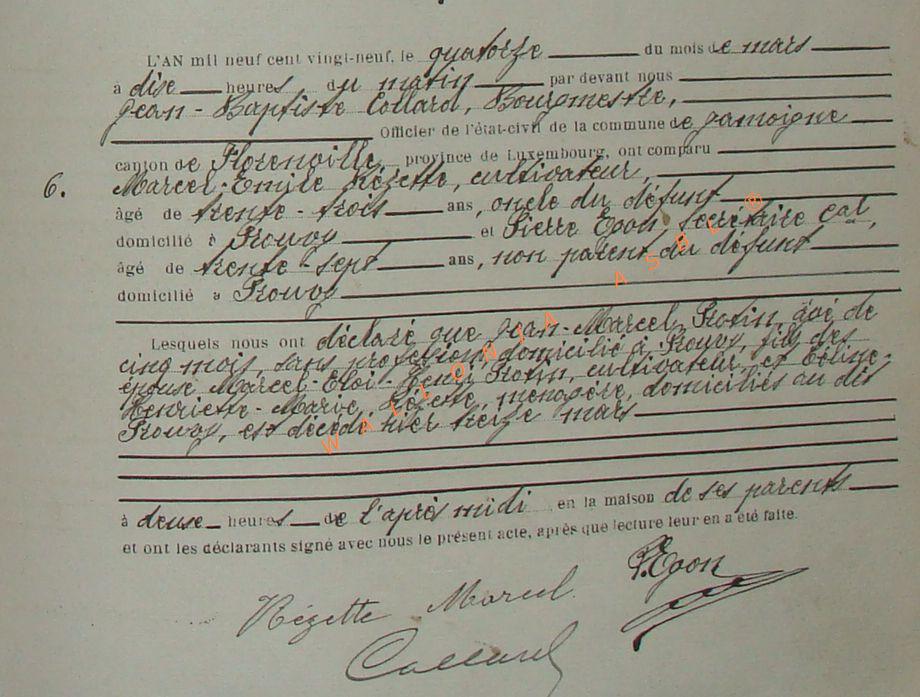 L'AN mil neuf cent vingt-neuf, le quatorze du mois de mars
à dixe heures du matin par devant nous
Jean-Baptiste Collard, Bourgmestre,
Officier de l'état-civil de la commune de Jamoigne
canton de Florenville province de Luxembourg, ont comparu
6. Marcel-Emile Rézette, cultivateur,
âgé de trente-trois ans, oncle du défunt
domicilié à Prouvy et Pierre Egon, secrétaire cal,
âgé de trente-sept ans, non parent du défunt
domicilié à Prouvy
Lesquels nous ont déclaré que Jean-Marcel Protin, âgé de
cinq mois, sans profession, domicilié à Prouvy, fils des
époux Marcel-Eloi-Henri Protin, cultivateur, et
Henriette-Marie Rézette, ménagère, domiciliés au dit
Prouvy, est décédé hier treize mars
à deuxe heures de l'après midi en la maison de ses parents
et ont les déclarants signé avec nous le présent acte, après que lecture leur en a été faite.
P. Egon
Rézette Marcel
Collard
WALLONIA ASBL ®